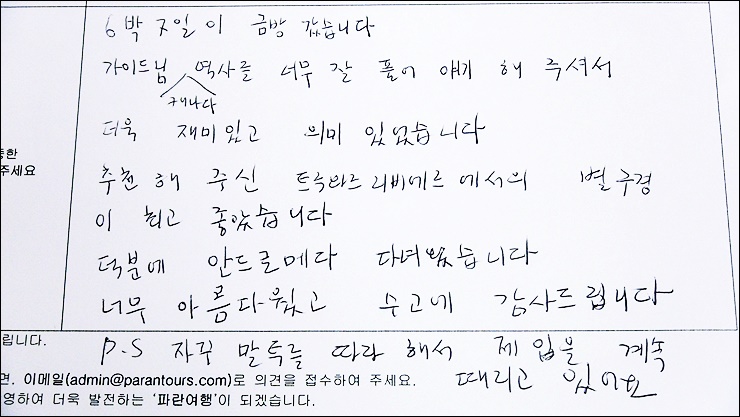 6박 7일이 금방 갔습니다
가이드님 역사를 너무 잘 풀어 얘기 해 주셔서
캐나다
더욱 재미있고 의미 있었습니다
추천 해 주신 트루와르리비에르에서의 별구경
이 최고 좋았습니다
덕분에 안드로메다 다녀왔습니다
너무 아름다웠고 수고에 감사드립니다
P.S 자꾸 말투를 따라 해서 제 입을 계속
때리고 있어요
주세요
립니다.
면, 이메일(admin@parantours.com)로 의견을 접수하여 주세요.
영하여 더욱 발전하는 '파란여행'이 되겠습니다.